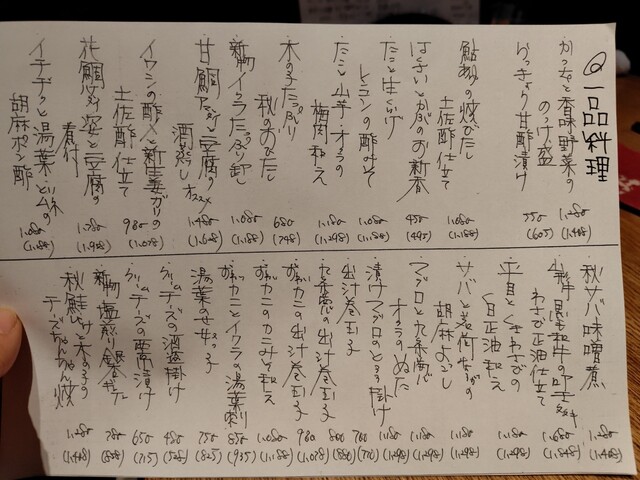 ◎一品料理
かつをと香味野菜の
のっけ盛
1.280
(1.408)
らっきょう甘酢漬け
550
(605)
鮎あらの炊びたし
土佐酢仕立て
1.080
(1.188)
はくさいとかぶのお新香
450
(495)
たこと生くらげ
とレモンの酢みそて
1.080
(1.188)
たこと山芋・オクラの
梅肉和え
1.180
(1.298)
木の子たっぷり
秋のおひたし
680
(748)
新物イクラたっぷり卸し
1.080
(1.188)
甘鯛アラだきと豆腐の
酒蒸し
オススメ
1.480
(1.628)
イワシの酢〆と新生姜ガリの
土佐酢仕立て
980
(1.078)
花鯛 姿と豆腐の
煮付
1.780
(1.958)
イチヂクと湯葉と
胡麻ポン酢
1.080
(1.188)
秋サバ味噌煮
1.280
(1.408)
飛騨 黒毛和牛の叩き
わさび正油仕立て
1.680
(1.848)
平目とくきわさびの
白正油和え
1.180
(1.298)
サバと茗荷・生姜の
胡麻よごし
1.180
(1.298)
マグロと九条葱
オクラのぬた
1.180
(1.298)
漬けマグロのとろろ掛け
1.180
(1.298)
出汁巻玉子
700
(770)
九条葱の出汁巻玉子
800
(880)
ずわいカニの出汁巻玉子
980
(1.078)
ずわいカニのカニみそ和え
1.080
(1.188)
ずわいカニとイクラの湯葉刺し
850
(935)
湯葉のせ
750
(825)
クリームチーズの酒盗掛け
480
(528)
クリームチーズの西京漬け
650
(715)
新物 塩煎り銀ギナン
780
(858)
秋鮭と木の子の
チーズちゃんちゃん焼
1.280
(1.408)